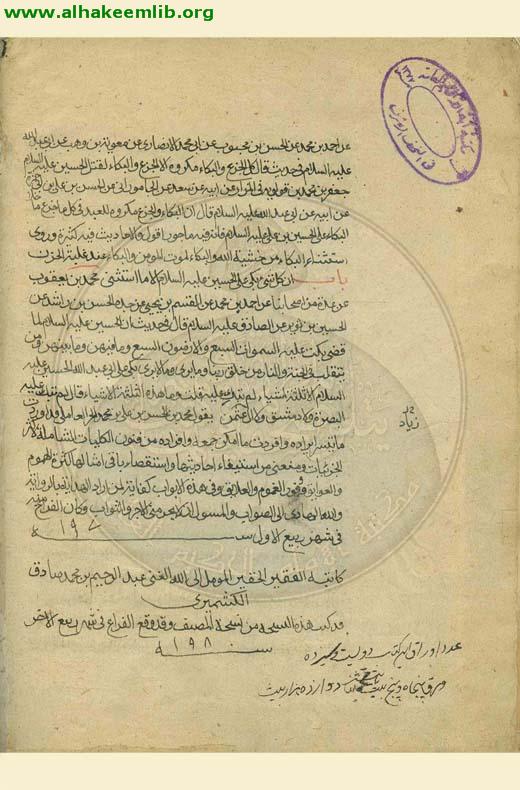 www.alhakeemlib.org
عن احمد بن محمد عن الحسن بن محبوب عن ابى محمد الانصارى عن معوية بن وهب عن ابى عبد الله
عليه السلام فى حديث قال كل الجزع والبكاء مكروه الا الجزع والبكاء لقتل الحسين عليه السلام
جعفر بن محمد بن قولويه فى المزار عن ابيه عن سعد عن الجامورانى عن الحسن بن على بن ابى حمزة
عن ابيه عن ابى عبد الله عليه السلام قال ان البكاء والجزع مكروه للعبد فى كل ما جزع ما خلا
البكاء على الحسين بن على عليه السلام فانه فيه ماجور اقول والاحاديث فيه كثيرة وروى
استثناء البكاء من خشية الله والبكاء لموت المومن والبكاء عند غلبة الحزن
باب ان كل شئ بكى على الحسين عليه السلام الا ما استثنى محمد بن يعقوب
عن عدة من اصحابنا عن احمد بن محمد عن القسم بن يحيى عن جده الحسن بن راشد عن
الحسين بن ثوير عن الصادق عليه السلام قال فى حديث ان الحسين عليه السلام لما
قضى بكت عليه السموات السبع والارضون السبع وما فيهن وما بينهن ومن
يتقلب فى الجنة والنار من خلق ربنا وما يرى وما لا يرى بكى على ابى عبد الله عليه
السلام الا ثلثة اشياء لم تبك عليه قلت وما هذه الثلثة الاشياء قال لم تبك عليه
البصرة ولا دمشق ولا ال عثمن يقول محمد بن الحسن بن على بن محمد الحر العاملى قد اوردت
ما تيسر ايراده وافردت ما امكن جمعه وافراده من فنون الكليات الشاملة لاكثر
الجزئيات ومنعنى من استيفاء احاديثها واستقصاء باقى امثالها كثرة الهموم
والعوايق وفور الغموم والعلايق وفى هذه الابواب كفاية لمن اراد الهداية
والله الهادى الى الصواب والمسول ان لا يحرمنى الاجر والثواب وكان الفراغ منه
فى شهر ربيع الاول سنة
زياد
كاتبه الفقير الحقير المومل الى الله الغنى عبد الرحيم بن محمد صادق
الكشميرى
قد كتب هذه النسخة من نسخة المصنف وقد وقع الفراغ فى شهر ربيع الاخر
سنة ١٩٨٠
عدد اوراق اين كتاب دويست و